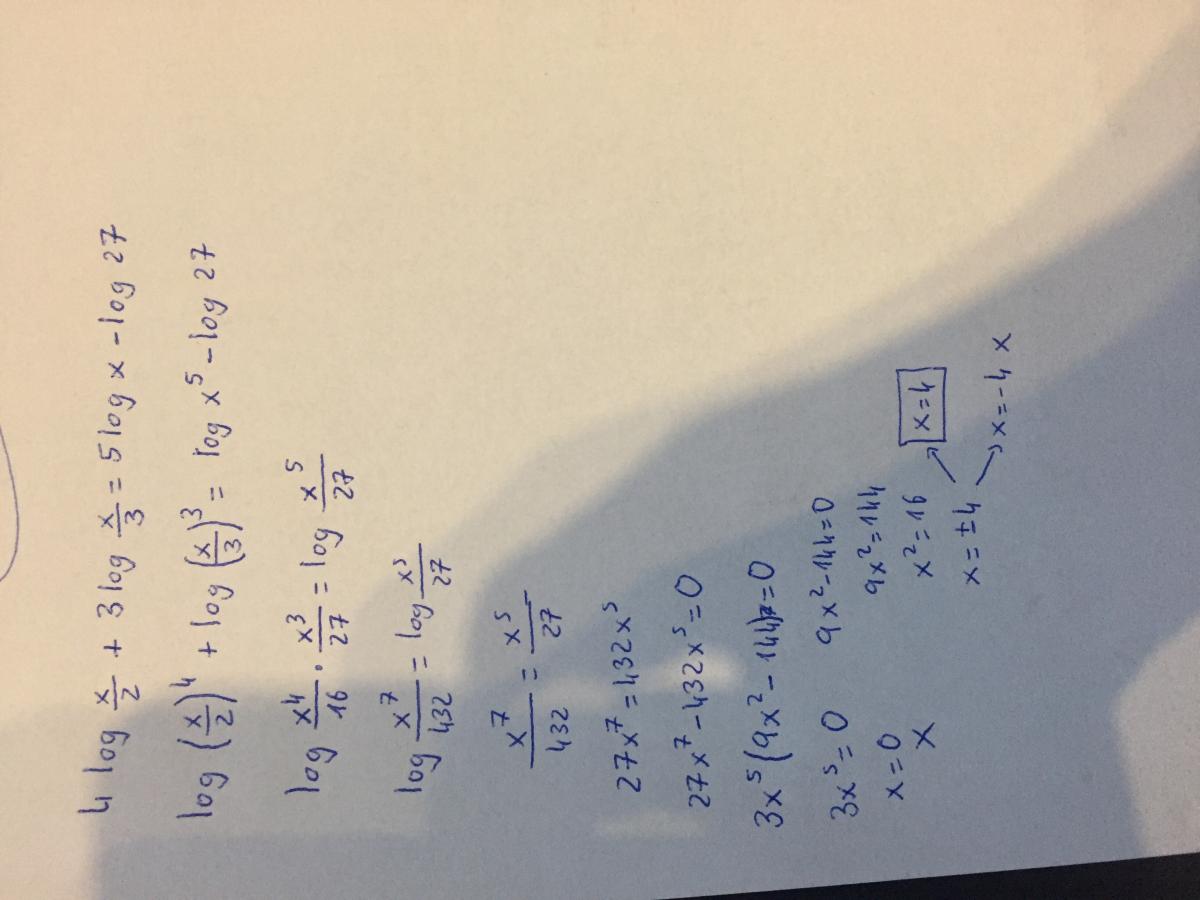 4 log x/2 + 3 log x/3 = 5 log x - log 27
log (x/2)⁴ + log (x/3)³ = log x⁵ - log 27
log x⁴/16 · x³/27 = log x⁵/27
log x⁷/432 = log x⁵/27
x⁷/432 = x⁵/27
27x⁷ = 432x⁵
27x⁷ - 432x⁵ = 0
3x⁵(9x² - 144) = 0
3x⁵ = 0 9x² - 144 = 0
x = 0 9x² = 144
x x² = 16
x = ±4 x = 4
x = -4 x